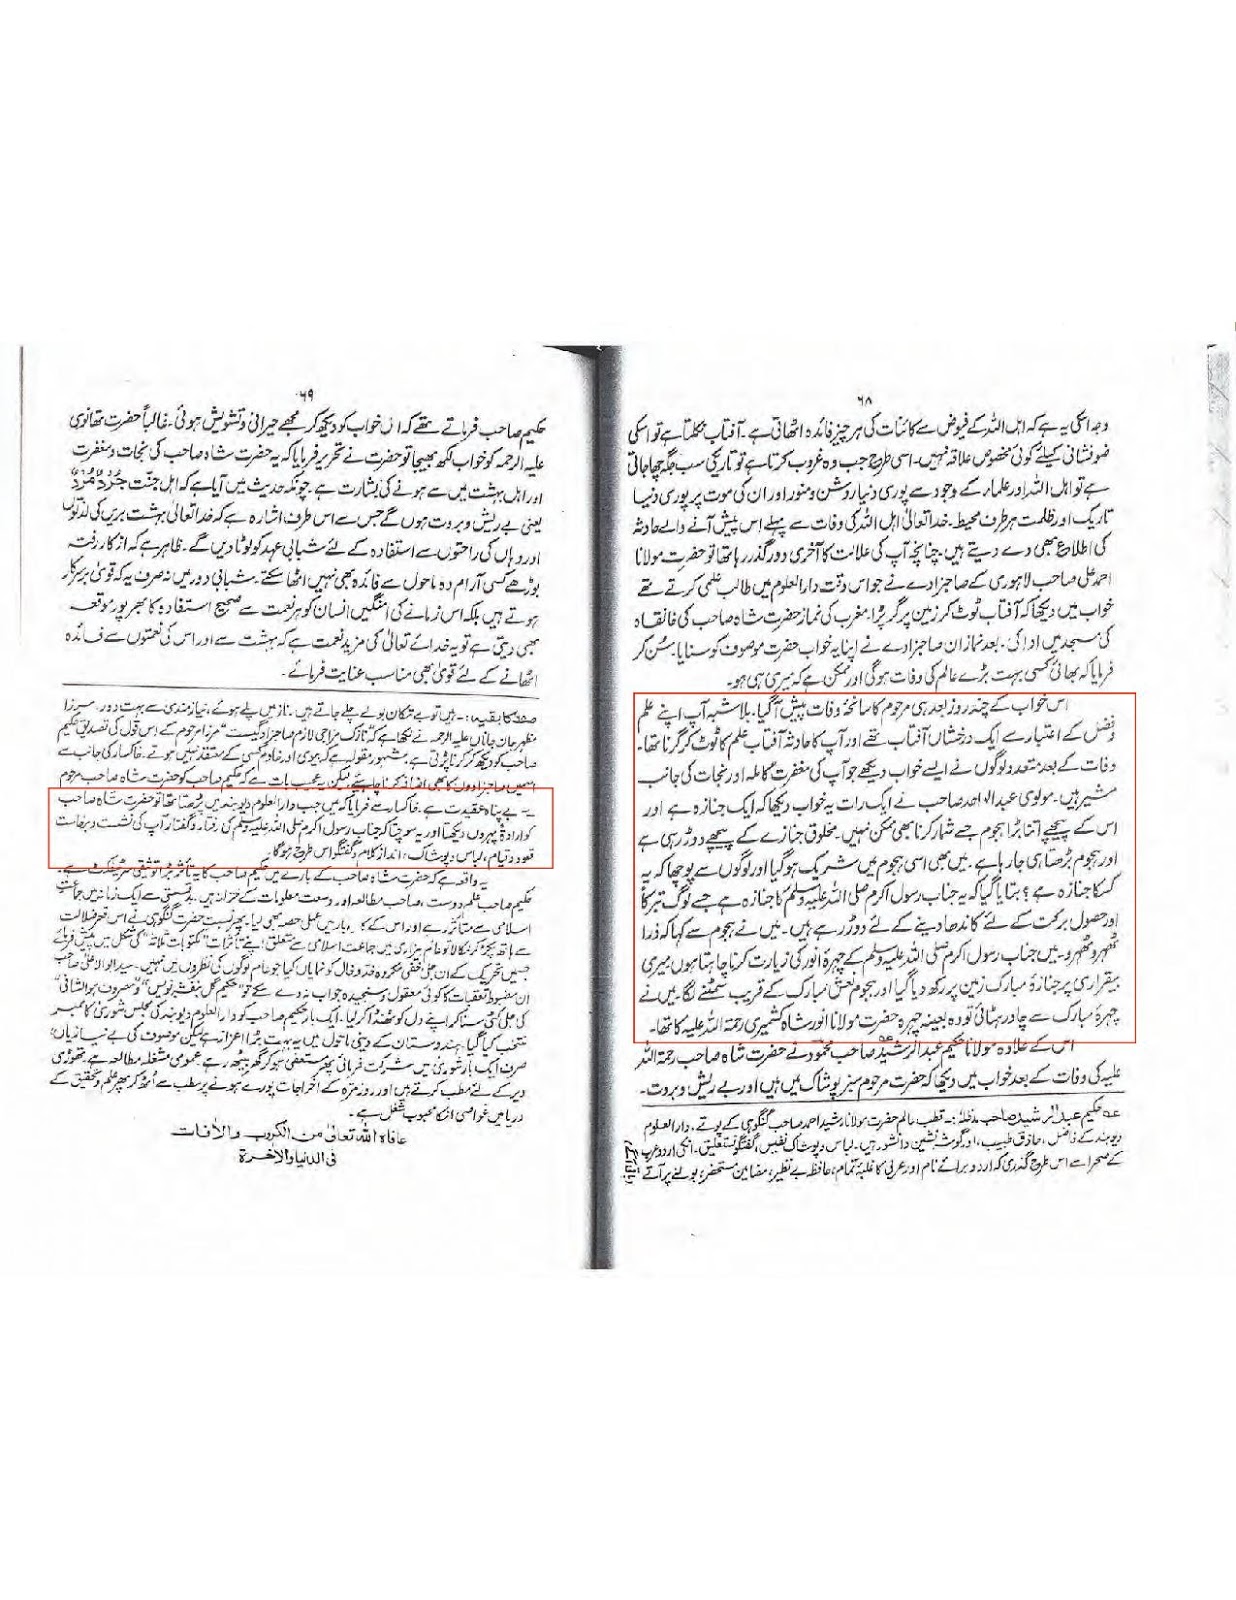 ۶۸
وجہ اسکی یہ ہے کہ اہل اللہ کے فیوض سے کائنات کی ہر چیز فائدہ اٹھاتی ہے۔ آفتاب نکلتا ہے تو اسکی
ضوفشانی کیلئے کوئی مخصوص علاقہ نہیں۔ اسی طرح جب وہ غروب کرتا ہے تو تاریکی سب جگہ چھا جاتی
ہے تو اہل اللہ اور علماء کے وجود سے پوری دنیا روشن و منور اور ان کی موت پر پوری دنیا
تاریک اور ظلمت ہر طرف محیط۔ خدا تعالیٰ اہل اللہ کی وفات سے پہلے اس پیش آنے والے حادثہ
کی اطلاع بھی دے دیتے ہیں۔ چنانچہ آپ کی علالت کا آخری دور گذر رہا تھا تو حضرت مولانا
احمد علی صاحب لاہوری کے صاجزادے نے جو اس وقت دارالعلوم میں طالب علمی کرتے تھے
خواب میں دیکھا کہ آفتاب ٹوٹ کر زمین پر گر پڑا۔ مغرب کی نماز حضرت شاہ صاحب کی خانقاہ
کی مسجد میں ادا کی۔ بعد نماز ان صاجزادے نے اپنا یہ خواب حضرت موصوف کو سنایا۔ سُن کر
فرمایا کہ بھائی کسی بہت بڑے عالم کی وفات ہوگی اور ممکن ہے کہ میری ہی ہو۔
اس خواب کے چند روز بعد ہی مرحوم کا سانحۂ وفات پیش آگیا۔ بلاشبہ آپ اپنے علم
و فضل کے اعتبار سے ایک درخشاں آفتاب تھے اور آپ کا حادثہ آفتاب علم کا ٹوٹ کر گرنا تھا۔
وفات کے بعد متعدد لوگوں نے ایسے خواب دیکھے جو آپ کی مغفرت کاملہ اور نجات کی جانب
مشیر ہیں۔ مولوی عبدالواحد صاحب نے ایک رات یہ خواب دیکھا کہ ایک جنازہ ہے اور
اس کے پیچھے اتنا بڑا ہجوم جسے شمار کرنا بھی ممکن نہیں۔ مخلوق جنازے کے پیچھے دوڑ رہی ہے
اور ہجوم بڑھتا ہی جا رہا ہے۔ میں بھی اسی ہجوم میں شریک ہوگیا اور لوگوں سے پوچھا کہ یہ
کس کا جنازہ ہے؟ بتایا گیا کہ یہ جناب رسول اکرم صلی اللہ علیہ وسلم کا جنازہ ہے جسے لوگ تبرکاً
اور حصول برکت کے لئے کاندھا دینے کے لئے دوڑ رہے ہیں۔ میں نے ہجوم سے کہا کہ ذرا
ٹھہرو ٹھہرو۔ میں جناب رسول اکرم صلی اللہ علیہ وسلم کے چہرۂ انور کی زیارت کرنا چاہتا ہوں میری
بیقراری پر جنازۂ مبارک زمین پر رکھ دیا گیا اور ہجوم نعش مبارک کے قریب سمٹنے لگا۔ میں نے
چہرۂ مبارک سے چادر ہٹائی تو وہ بعینہ چہرہ حضرت مولانا انور شاہ کشمیری رحمۃ اللہ علیہ کا تھا۔
اس کے علاوہ مولانا حکیم عبدالرشید صاحب محمود نے حضرت شاہ صاحب رحمۃ اللہ
علیہ کی وفات کے بعد خواب میں دیکھا کہ حضرت مرحوم سبز پوشاک میں ہیں اور بے ریش و بروت۔
عہ حکیم عبدالرشید صاحب مدظلہ:۔ قطب عالم حضرت مولانا رشید احمد صاحب گنگوہی کے پوتے، دارالعلوم
دیوبند کے فاضل، حاذق طبیب، اور گوشہ نشین دانشور ہیں۔ لباس و پوشاک نفیس، گفتگو نستعلیق۔ انکی اردو عرب
کے صحرا سے اس طرح گذری کہ اردو برائے نام اور عربی کا غلبۂ تمام، حافظہ بے نظیر، مضامین مستحضر، بولنے پر آتے
۶۹
حکیم صاحب فرماتے تھے کہ اس خواب کو دیکھ کر مجھے حیرانی و تشویش ہوئی۔ غالباً حضرت تھانوی
علیہ الرحمہ کو خواب لکھ بھیجا تو حضرت نے تحریر فرمایا کہ یہ حضرت شاہ صاحب کی نجات و مغفرت
اور اہل بہشت میں سے ہونے کی بشارت ہے۔ چونکہ حدیث میں آیا ہے کہ اہل جنت جُرْدٌ مُرْدٌ
یعنی بے ریش و بروت ہوں گے جس سے اس طرف اشارہ ہے کہ خدا تعالیٰ بہشت بریں کی لذتوں
اور وہاں کی راحتوں سے استفادہ کے لئے شبابی عہد کو لوٹا دیں گے۔ ظاہر ہے کہ از کار رفتہ
بوڑھے کسی آرام دہ ماحول سے فائدہ بھی نہیں اٹھا سکتے۔ شبابی دور میں نہ صرف یہ کہ قویٰ برسرکار
ہوتے ہیں بلکہ اس زمانے کی امنگیں انسان کو ہر نعمت سے صحیح استفادہ کا بھرپور موقعہ
بھی دیتی ہے تو یہ خدائے تعالیٰ کی مزید نعمت ہے کہ بہشت سے اور اس کی نعمتوں سے فائدہ
اٹھانے کے لئے قویٰ بھی مناسب عنایت فرمائے۔
صفحہ کا بقیہ:۔ ہیں تو بے تکان بولے چلے جاتے ہیں۔ ناز میں پلے ہوئے، نیازمندی سے بہت دور۔ مرزا
مظہر جان جاناں علیہ الرحمہ نے لکھا ہے کہ "نازک مزاجی لازم صاجزادگیست" مرزا مرحوم کے اس قول کی تصدیق حکیم
صاحب کو دیکھ کر کرنا پڑتی ہے، مشہور مقولہ ہے کہ بیوی اور خادم کسی کے معتقد نہیں ہوتے۔ خاکسار کی جانب سے
اسمیں صاجزادوں کا بھی اضافہ کرنا چاہئے لیکن یہ عجیب بات ہے کہ حکیم صاحب کو حضرت شاہ صاحب مرحوم
سے بے پناہ عقیدت ہے۔ خاکسار سے فرمایا کہ میں جب دارالعلوم دیوبند میں پڑھتا تھا تو حضرت شاہ صاحب
کو ارادۃً پہروں دیکھتا اور یہ سوچتا کہ جناب رسول اکرم صلی اللہ علیہ وسلم کی رفتار و گفتار آپ کی نشست و برخاست
قعود و قیام، لباس و پوشاک، انداز کلام و گفتگو اس طرح ہوگا۔
یہ واقعہ ہے کہ حضرت شاہ صاحب کے بارے میں حکیم صاحب کا یہ تأثر بڑا توثیقی سرٹیفکٹ ہے۔
حکیم صاحب علم دوست، صاحب مطالعہ اور وسعت معلومات کے خزانہ ہیں۔ بدقسمتی سے ایک زمانہ میں جماعت
اسلامی سے متأثر رہے اور اس کے کاروبار میں عملی حصہ بھی لیا۔ پھر نسبت حضرت گنگوہی نے اس قعر ضلالت
سے ہاتھ پکڑ کر نکالا تو عالم بیزاری میں جماعت اسلامی سے متعلق اپنے تأثرات "مکتوبات ثلاثہ" کی شکل میں پیش فرمائے
جسمیں تحریک کے ان جلی خفی مکروہ خد و خال کو نمایاں کیا جو عام لوگوں کی نظروں میں نہیں۔ سید ابوالاعلیٰ صاحب
ان مضبوط تعقبات کا کوئی معقول و سنجیدہ جواب نہ دے سکے تو "حکیم گل بنفشہ نویس" و "معروف ہوالشافی"
کی جلی کٹی سنا کر اپنے دل کو ٹھنڈا کر لیا۔ ایک بار حکیم صاحب کو دارالعلوم دیوبند کی مجلس شوریٰ کا ممبر
منتخب کیا گیا، ہندوستان کے دینی ماحول میں یہ بہت بڑا اعزاز ہے لیکن موصوف کی بے نیازیاں؛
صرف ایک بار شوریٰ میں شرکت فرمائی پھر مستعفی ہو کر گھر بیٹھ رہے۔ عمومی مشغلہ مطالعہ ہے تھوڑی
دیر کے لئے مطب کرتے ہیں اور روزمرہ کے اخراجات پورے ہونے پر مطب سے اٹھ کر پھر علم و تحقیق کے
دریا میں غواصی انکا محبوب شغل ہے۔
عافاہ اللہ تعالیٰ من الکروب والآفات
فی الدنیا والآخرۃ